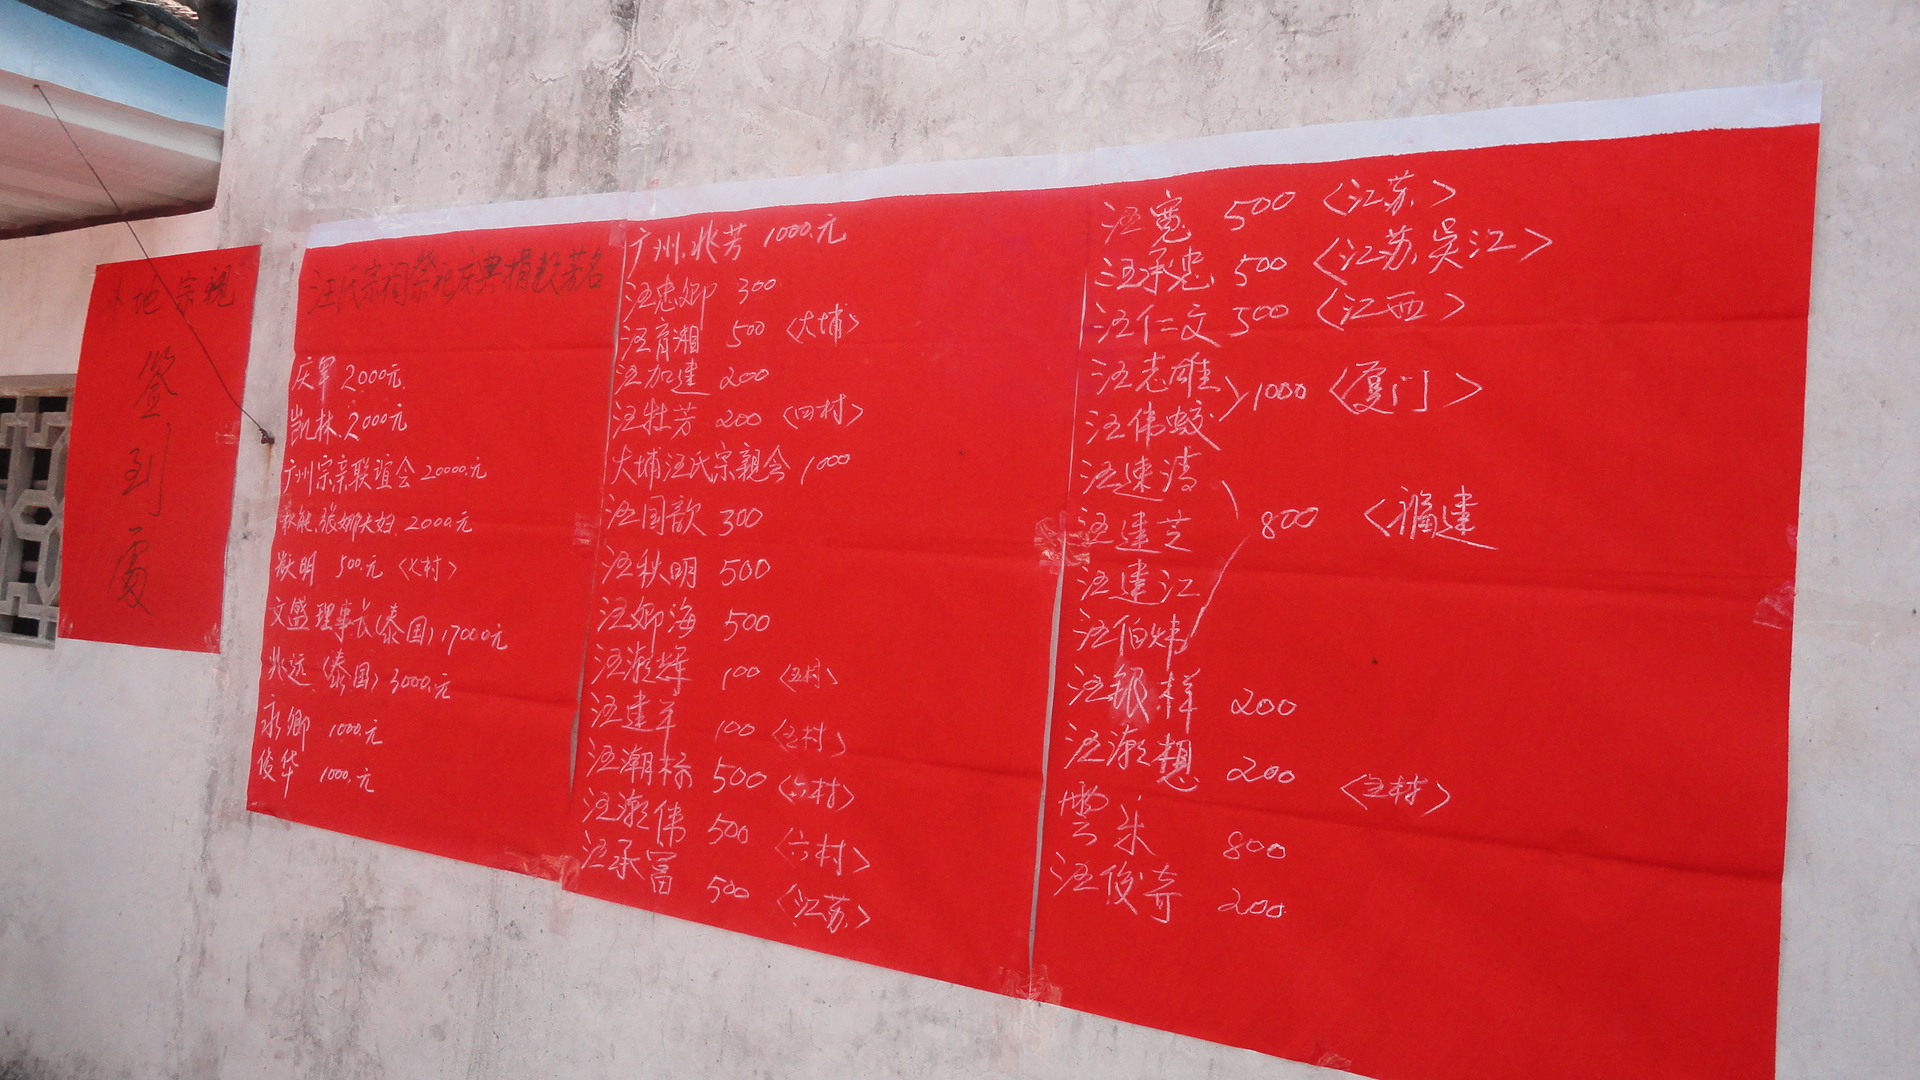 本地宗親
签
到
處
汪氏宗祠祭祀庆典捐款芳名
庆罩 2000元
凯林 2000元
广州宗亲联谊会 20000元
张娜夫妇 2000元
明 500元 <七村>
文盛理事长(泰国) 17000元
兆远 (泰国) 3000元
永卿 1000元
俊华 1000元
广州 兆芳 1000元
汪忠卿 300
汪育湘 500 <大埔>
汪加建 200
汪牡芳 200 <四村>
大埔汪氏宗親会 1000
汪国歆 300
汪秋明 500
汪卿海 500
汪潮辉 100 <五村>
汪建羊 100 <五村>
汪潮标 500 <六村>
汪潮伟 500 <六村>
汪承富 500 <江苏>
汪寬 500 <江苏>
汪承忠 500 <江苏吴江>
汪仁文 500 <江西>
汪志雄
汪伟蛟 1000 <厦门>
汪速清
汪建芝 800 <福建
汪建江
汪伯炜
汪银样 200
汪潮想 200 <五村>
雲朱 800
汪俊奇 200